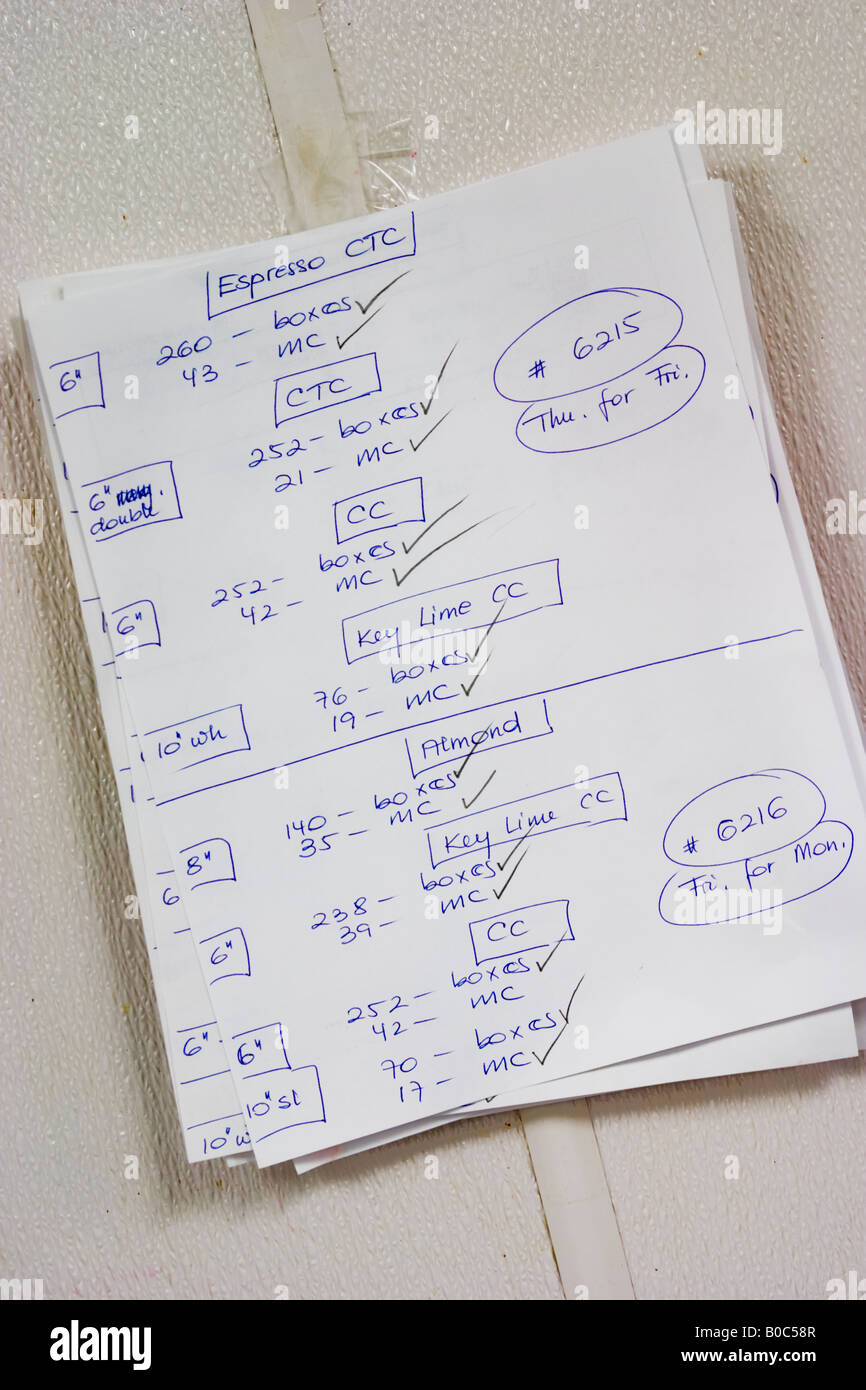 Espresso CTC
6" 260 - boxes
43 - MC
# 6215
Thu. for Fri.
CTC
252 - boxes
21 - MC
6"
double
CC
252 - boxes
42 - MC
6"
Key Lime CC
76 - boxes
19 - MC
10" wh
Almond
140 - boxes
35 - MC
8"
Key Lime CC
# 6216
Fri. for Mon.
238 - boxes
39 - MC
6"
CC
252 - boxes
42 - MC
6"
70 - boxes
17 - MC
10" st
6
6"
10" w
alamy
Image ID: B0C58R
www.alamy.com